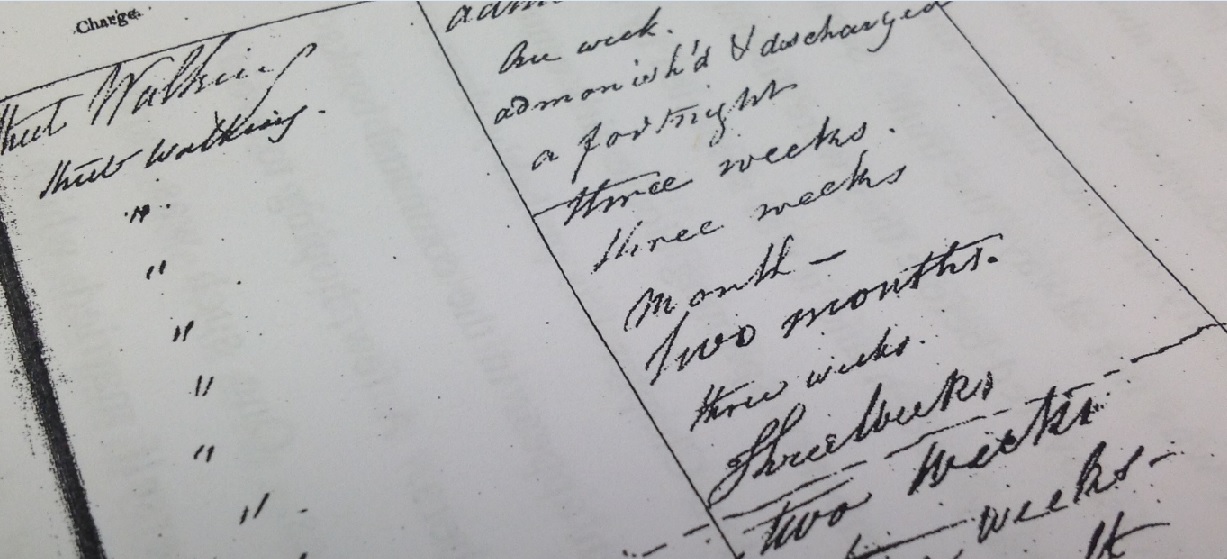 Charge.
Street Walking
Street walking.
"
"
"
"
"
"
One week.
admonish'd & discharged
a fortnight
three weeks.
three weeks
Month –
Two months.
three weeks.
Three Weeks
two weeks
weeks –